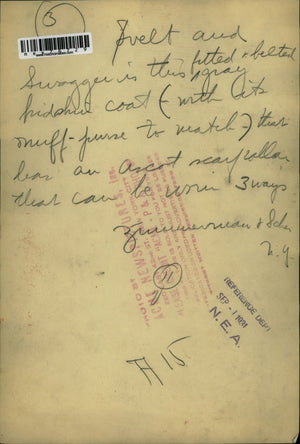 3
Svelt and
Swagger is this fitted & belted
gray
kidskin coat (with its
muff-purse to match) that
has an ascot scarf collar
that can be worn 3 ways
Zimmerman &
N.Y.
PHOTO BY
ACME NEWSPICTURES, INC.
16
REFERENCE DEPT
SEP - 1 1931
N. E. A.
A 15